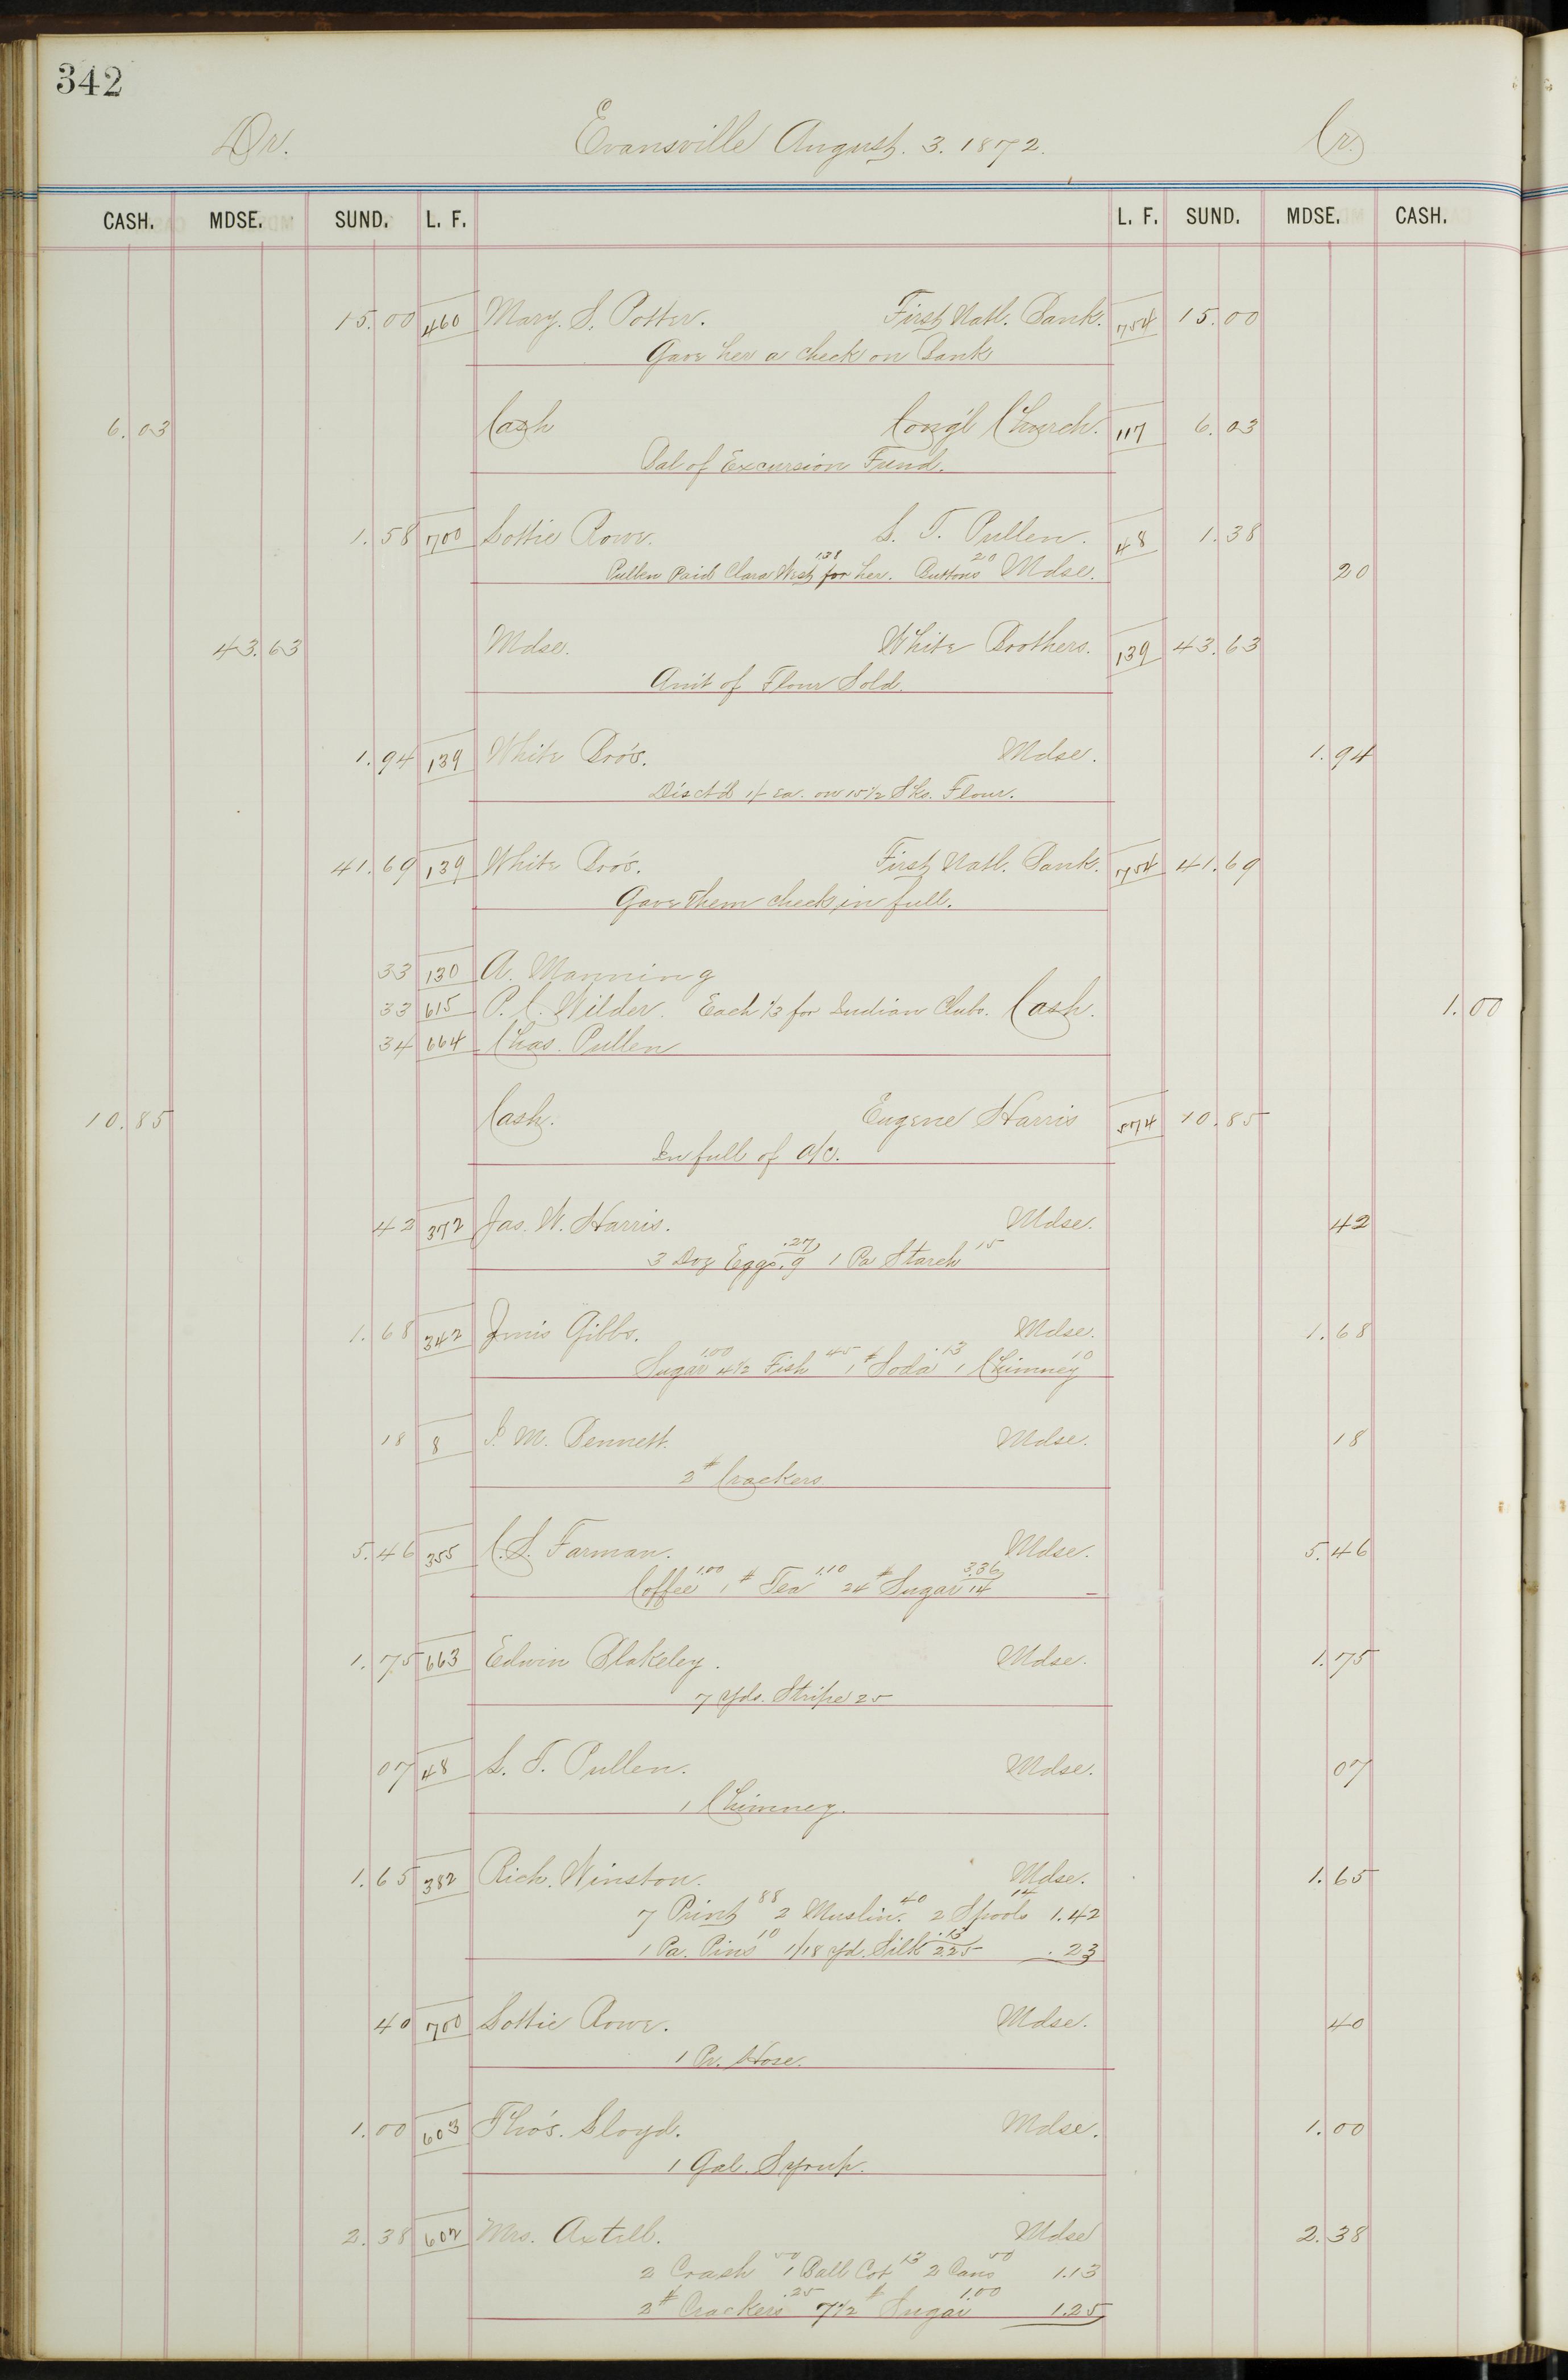 342
Dr. Evansville August. 3. 1872. Cr.
CASH. MDSE. SUND. L. F. L. F. SUND. MDSE. CASH.
15.00 460 Mary. S. Potter. First Natl. Bank. 754 15.00
Gave her a check on Bank
6.03 Cash Cong'l Church. 117 6.03
Bal of Excursion Fund.
1.58 700 Lottie Rowe. S. T. Pullen. 48 1.38
Pullen Paid Clara West 138 for her. Buttons 20 Mdse. 20
43.63 Mdse. White Brothers. 139 43.63
Amt of Flour Sold.
1.94 139 White Bro's. Mdse. 1.94
Disct'd 1/- Ea. on 15 1/2 Sks. Flour.
41.69 139 White Bro's. First Natl. Bank. 754 41.69
Gave them check in full.
33 130 A. Manning
33 615 P. C. Wilder. Each 1/3 for Indian Clubs. Cash. 1.00
34 664 Chas. Pullen
10.85 Cash. Eugene Harris 574 10.85
In full of a/c.
42 372 Jas. W. Harris. Mdse. 42
3 Doz Eggs .27 .9 1 Pa Starch 15
1.68 342 Gibbs. Mdse. 1.68
Sugar 1.00 4 1/2 Fish 45 1# Soda .13 1 Chimney 10
18 8 I. M. Bennett. Mdse. 18
2# Crackers
5.46 355 C. S. Farman. Mdse. 5.46
Coffee 1.00 1# Tea 1.10 24# Sugar 3.36 14
1.75 663 Edwin Blakeley. Mdse. 1.75
7 Yds. Stripe 25
07 48 S. T. Pullen. Mdse. 07
1 Chimney.
1.65 382 Rich. Winston. Mdse. 1.65
7 Print 88 2 Muslin. 40 2 Spools 14 1.42
1 Pa. Pins 10 1/18 yd. Silk .13 2.25 .23
40 700 Lottie Rowe. Mdse. 40
1 Pr. Hose.
1.00 603 Tho's. Lloyd. Mdse. 1.00
1 Gal. Syrup.
2.38 602 Mrs. Axtell. Mdse 2.38
2 Crash 50 1 Ball Cot 13 2 Cans 50 1.13
2# Crackers .25 7 1/2# Sugar 1.00 1.25